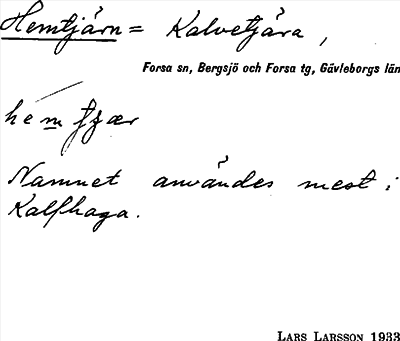 Hemtjärn = Kalvetjära,
Forsa sn, Bergsjö och Forsa tg, Gävleborgs län
hem
Namnet användes mest i
Kalfhaga.
LARS LARSSON 1933